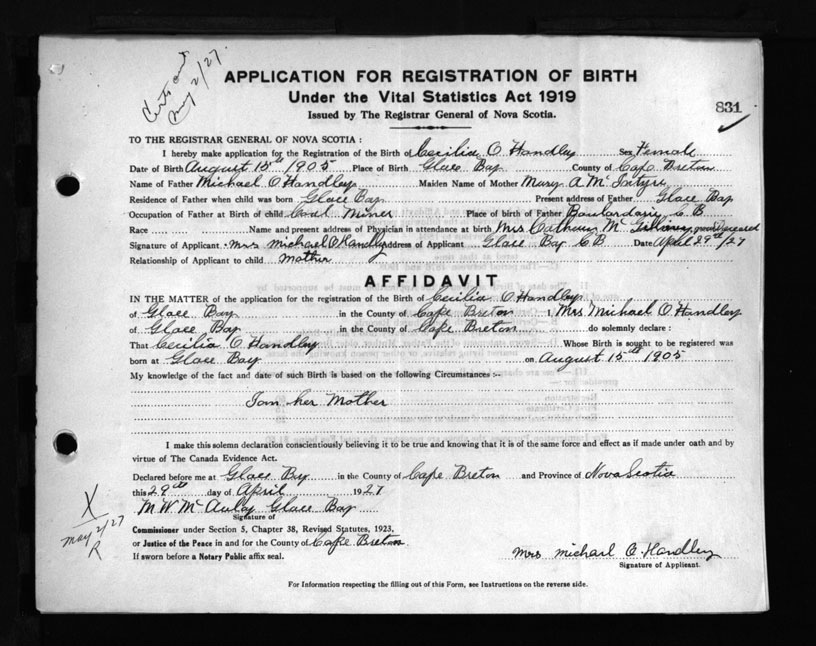 Certs sent
May 2/27.
APPLICATION FOR REGISTRATION OF BIRTH
Under the Vital Statistics Act 1919
Issued by The Registrar General of Nova Scotia.
831
TO THE REGISTRAR GENERAL OF NOVA SCOTIA :
I hereby make application for the Registration of the Birth of Cecilia O Handley Sex Female
Date of Birth August 15th 1905 Place of Birth Glace Bay County of Cape Breton
Name of Father Michael O Handley Maiden Name of Mother Mary A Mc Intyre
Residence of Father when child was born Glace Bay Present address of Father Glace Bay
Occupation of Father at Birth of child Coal Miner Place of birth of Father Boulardarie C B
Race Name and present address of Physician in attendance at birth Mrs Mc deceased
Signature of Applicant Mrs Michael O Handley Address of Applicant Glace Bay C B Date April 29th/27
Relationship of Applicant to child Mother
AFFIDAVIT
IN THE MATTER of the application for the registration of the Birth of Cecilia O Handley
of Glace Bay in the County of Cape Breton I, Mrs. Michael O. Handley
of Glace Bay in the County of Cape Breton do solemnly declare :
That Cecilia O Handley Whose Birth is sought to be registered was
born at Glace Bay on August 15th 1905
My knowledge of the fact and date of such Birth is based on the following Circumstances :-
I am her Mother
I make this solemn declaration conscientiously believing it to be true and knowing that it is of the same force and effect as if made under oath and by
virtue of The Canada Evidence Act.
Declared before me at Glace Bay in the County of Cape Breton and Province of Nova Scotia
this 29th day of April 1927
M W Mc Aulay Glace Bay
Signature of
Commissioner under Section 5, Chapter 38, Revised Statutes, 1923,
or Justice of the Peace in and for the County of Cape Breton
If sworn before a Notary Public affix seal.
X
May 2/27
R
Mrs Michael O. Handley
Signature of Applicant.
For Information respecting the filling out of this Form, see Instructions on the reverse side.